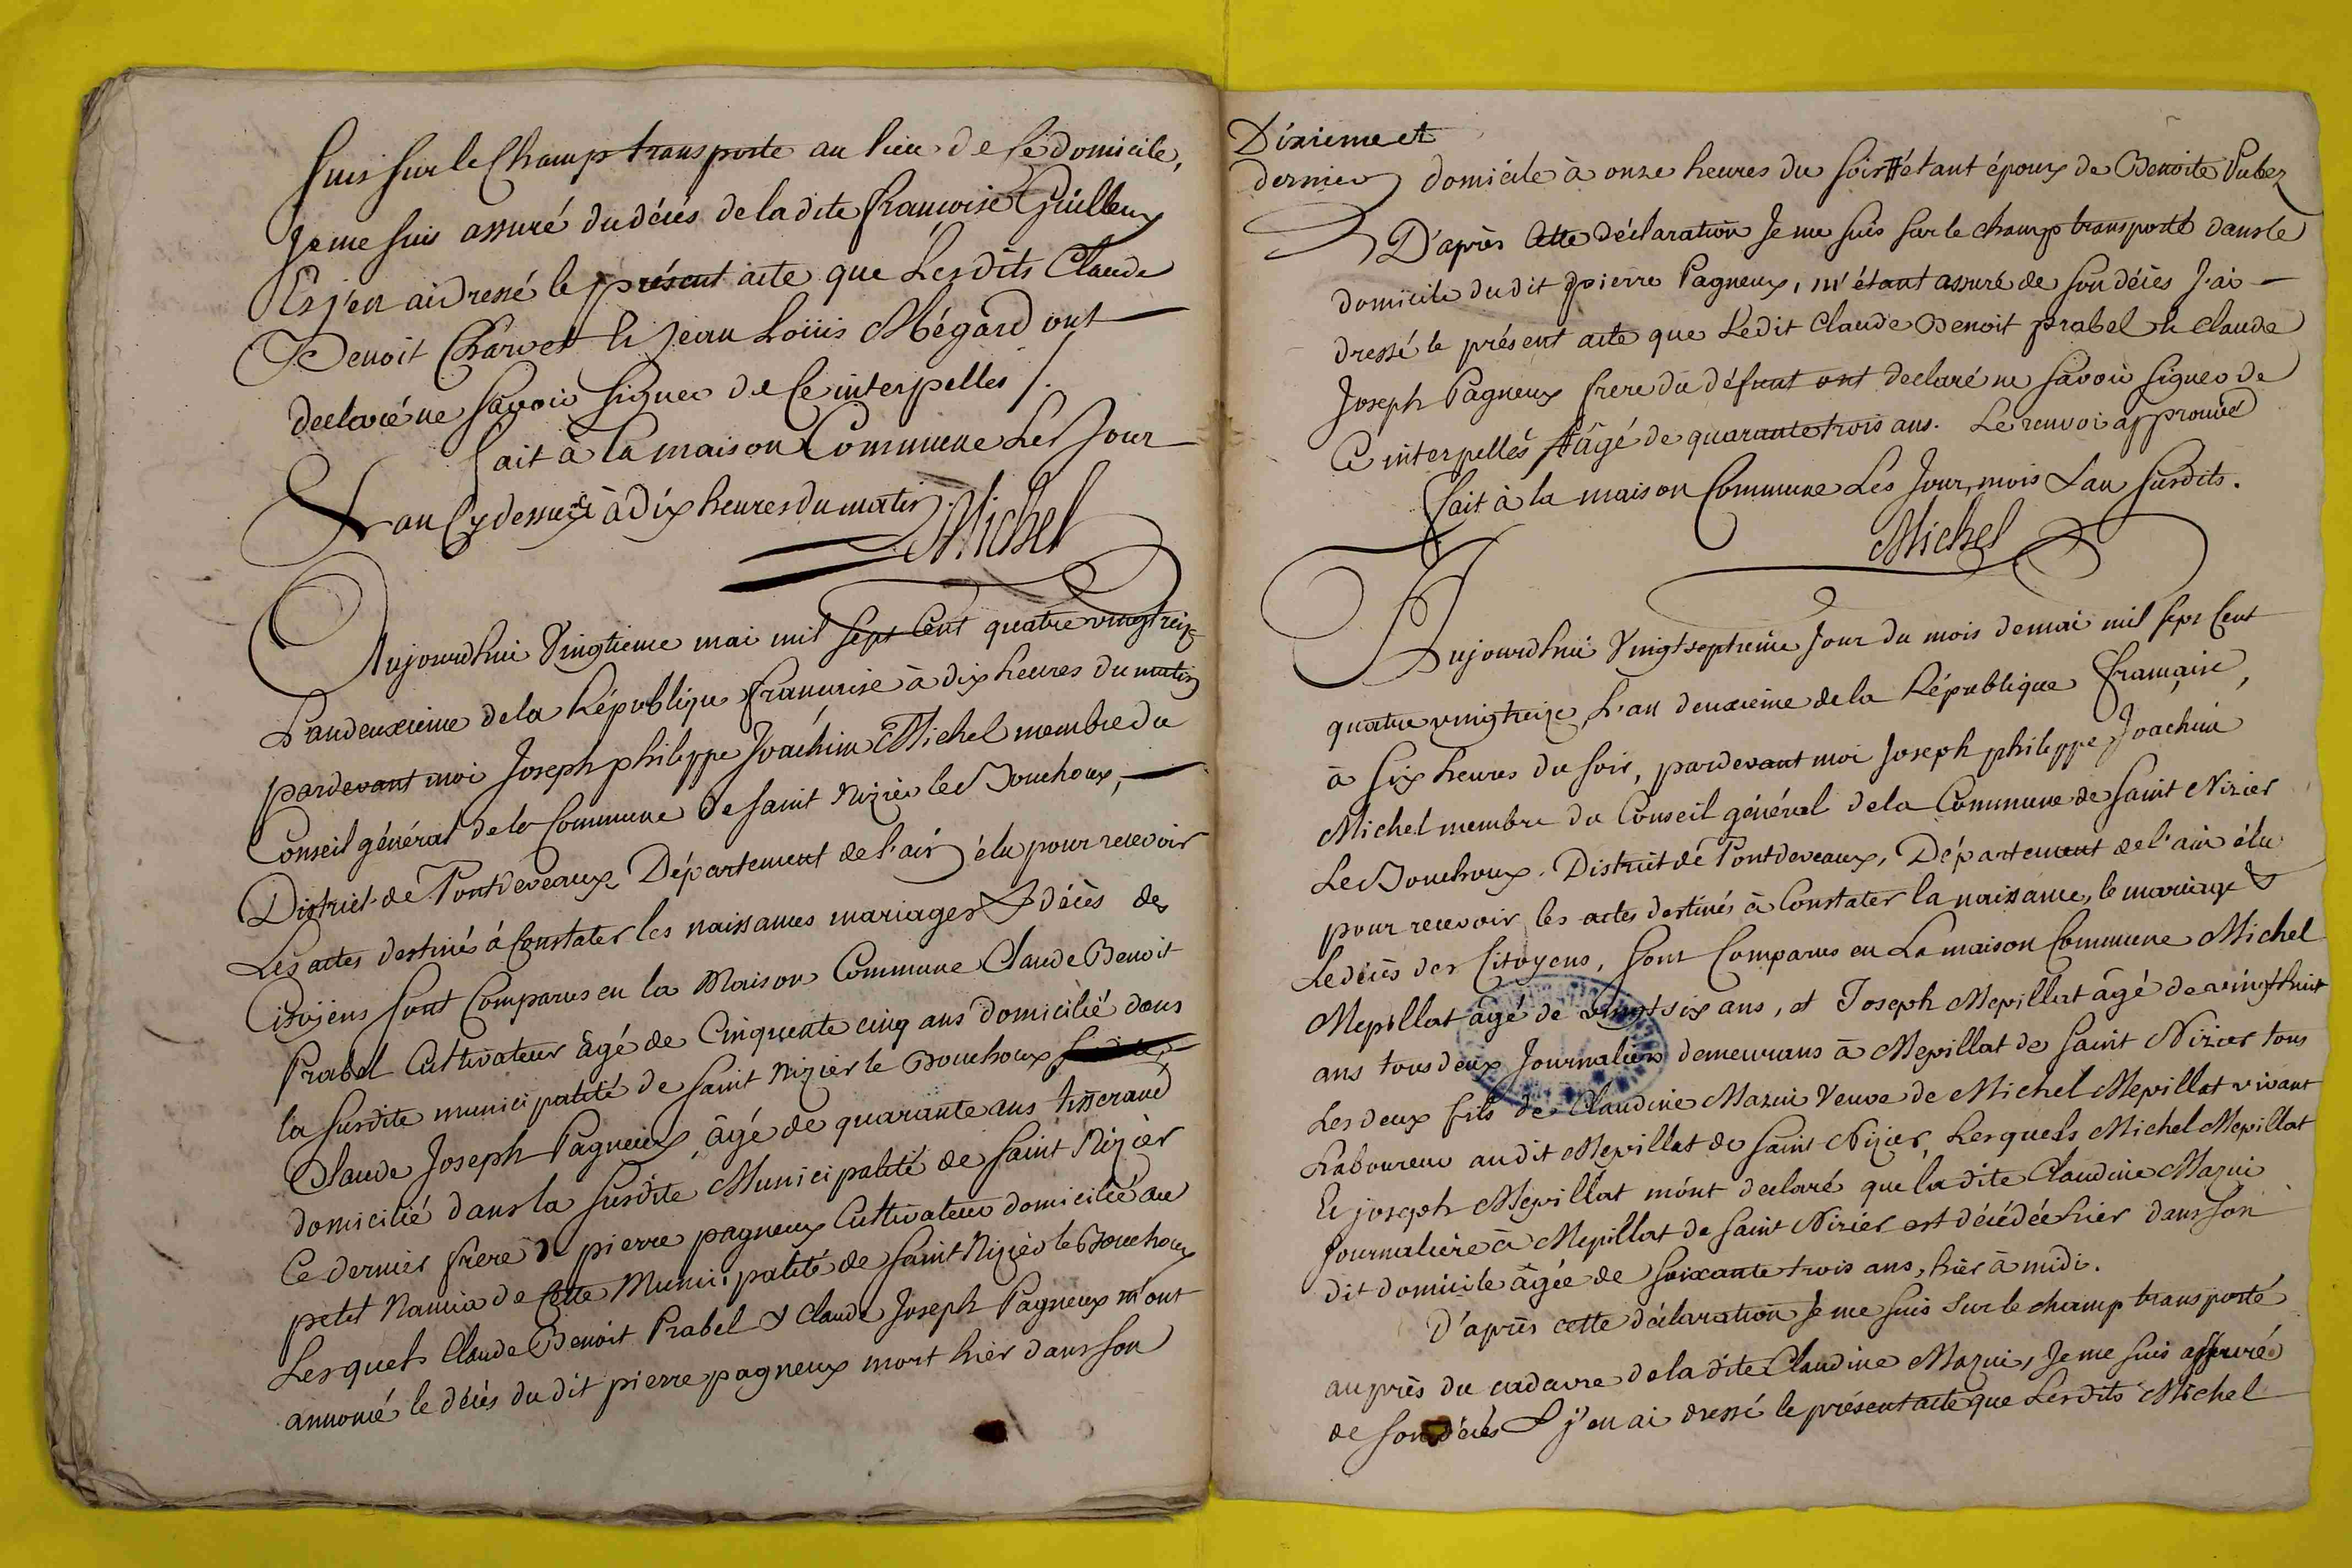 suis sur le Champ transporté au lieu de ce domicile,
Je me suis assuré du décés de la dite francoise Guilleux
Et j'en ai dressé le présent acte que Lesdits Claude
Benoit Charvet & Jean Loüis Mégard ont
declaré ne savoir signer de ce interpellés /.
fait à la maison Commune Les Jour
& an Cy dessus à Dix heures du matin.
Michel
Aujourdhui Vingtieme mai mil sept Cent quatre vingt treize
L'an deuxieme de la République francaise à dix heures du matin
pardevant moi Joseph philippe Joachim Michel membre du
Conseil général de la Commune de saint Nizier le Bouchoux,
District de Pontdeveaux Département de l'ain élu pour recevoir
Les actes destinés à Constater les naissances mariages & décès des
Citoÿens sont Comparus en la Maison Commune Claude Benoit
Prabel Cultivateur âgé de Cinquante cinq ans domicilié dans
la susdite municipalité de saint Nizier le Bouchoux
Claude Joseph Pagneux, âgé de quarante ans tisserand
domicilié dans la susdite Municipalité de saint Nizier
Ce dernier frere de pierre pagneux Cultivateur domicilié au
petit Namia de cette Municipalité de saint Nizier le Bouchoux
Lesquels Claude Benoit Prabel & Claude Joseph Pagneux m'ont
annoncé le décès du dit pierre pagneux mort hier dans son
Dixieme et
dernier
domicile à onze heures du soir # étant époux de Benoite Vubez
D'après cette déclaration Je me suis sur le champ transporté dans le
domicile dudit pierre Pagneux, m'étant assuré de son décès J'ai
dressé le présent acte que Ledit Claude Benoit prabel & claude
Joseph Pagneux frere du défunt ont declaré ne savoir signer de
Ce interpellés # âgé de quarante trois ans. Le renvoi approuvé
fait à la maison Commune Les Jour, mois & an susdits.
Michel
Aujourdhui Vingt septieme Jour du mois de mai mil sept Cent
quatre vingt treize, L'an deuxieme de la République francaise,
à six heures du soir, pardevant moi Joseph philippe Joachim
Michel membre du Conseil général de la Commune de saint Nizier
Le Bouchoux. District de Pontdeveaux, Département de l'ain élu
pour recevoir les actes destinés à Constater la naissance, le mariage &
Le décès des Citoyens, sont Comparus en La maison Commune Michel
Mepillat âgé de vingt six ans, et Joseph Mepillat âgé de vingt huit
ans tous deux Journaliers demeurans à Mepillat de saint Nizier tous
Les deux fils de Claudine Mazui Veuve de Michel Mepillat vivant
Laboureur au dit Mepillat de saint Nizier, Lesquels Michel Mepillat
& joseph Mepillat m'ont declaré que la dite Claudine Mazui
Journaliere à Mepillat de saint Nizier est décédée hier dans son
dit domicile âgée de soixante trois ans, hier à midi.
D'après cette déclaration Je me suis sur le champ transporté
auprès du cadavre de la dite Claudine Mazui, Je me suis assuré
de son décès & j'en ai dressé le présent acte que Lesdits Michel